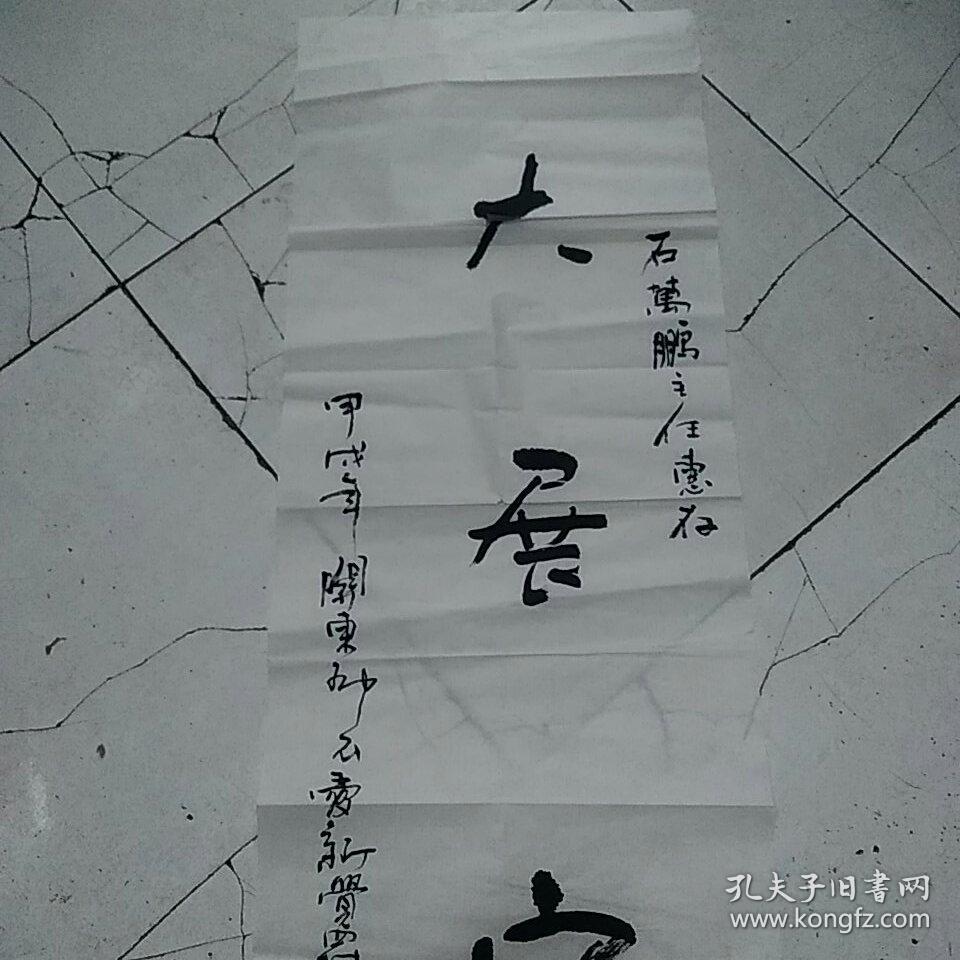 石萬鵬主任惠存
大展
甲戌年 關東 愛新覺
孔夫子旧書网
www.kongfz.com